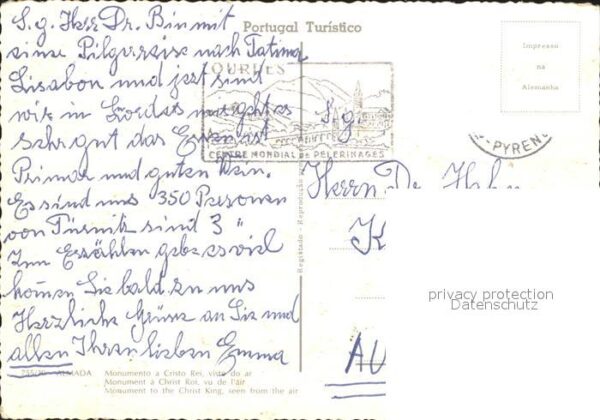 S.g. Herr Dr. Bin mit
einer Pilgerreise nach Fatima
Lisabon und jezt sind
wir in Lordes mir geht es
sehr gut das Essen ist
Prima und guten Wein.
Es sind uns 350 Presonen
von Türnitz sind 3 "
Zum Erzählen gebe es viel
komen Sie bald zu uns
Herzliche Grüße an Sie und
allen Ihren lieben Emma
ALMADA Monumento a Cristo Rei, visto do ar
Monument a Christ Roi, vu de l'air
Monument to the Christ King, seen from the air
Portugal Turístico
Impresso
na
Alemanha
OURDES
CENTRE MONDIAL DE PELERINAGES
-PYREN
Registado - Reproduçã
S.g.
Herrn Dr.
K
AU
privacy protection
Datenschutz